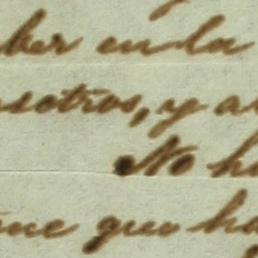 ber en la
sotros, y a
No h
ne que ha